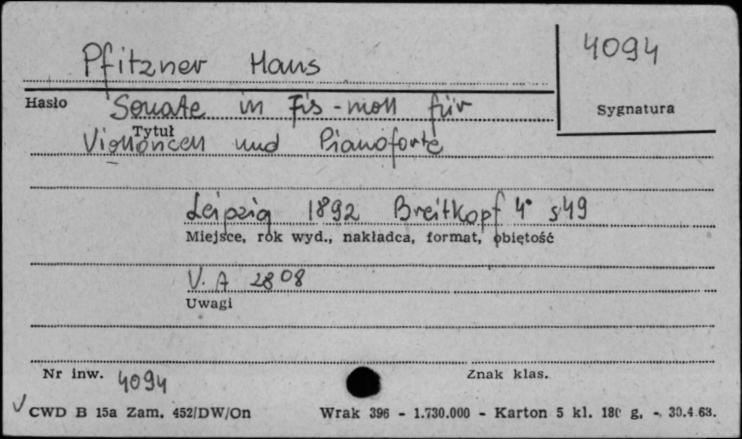 Pfitzner Hans
4094
Hasło
Sygnatura
Sonate in Fis-moll für
Tytuł
Violloncell und Pianoforte
Leipzig 1892 Breitkopf 4° s49
Miejsce, rok wyd., nakładca, format, objętość
V. A 2808
Uwagi
Nr inw. 4094
Znak klas.
CWD B 15a Zam. 452/DW/On
Wrak 396 - 1.730.000 - Karton 5 kl. 180 g. - 30.4.63.